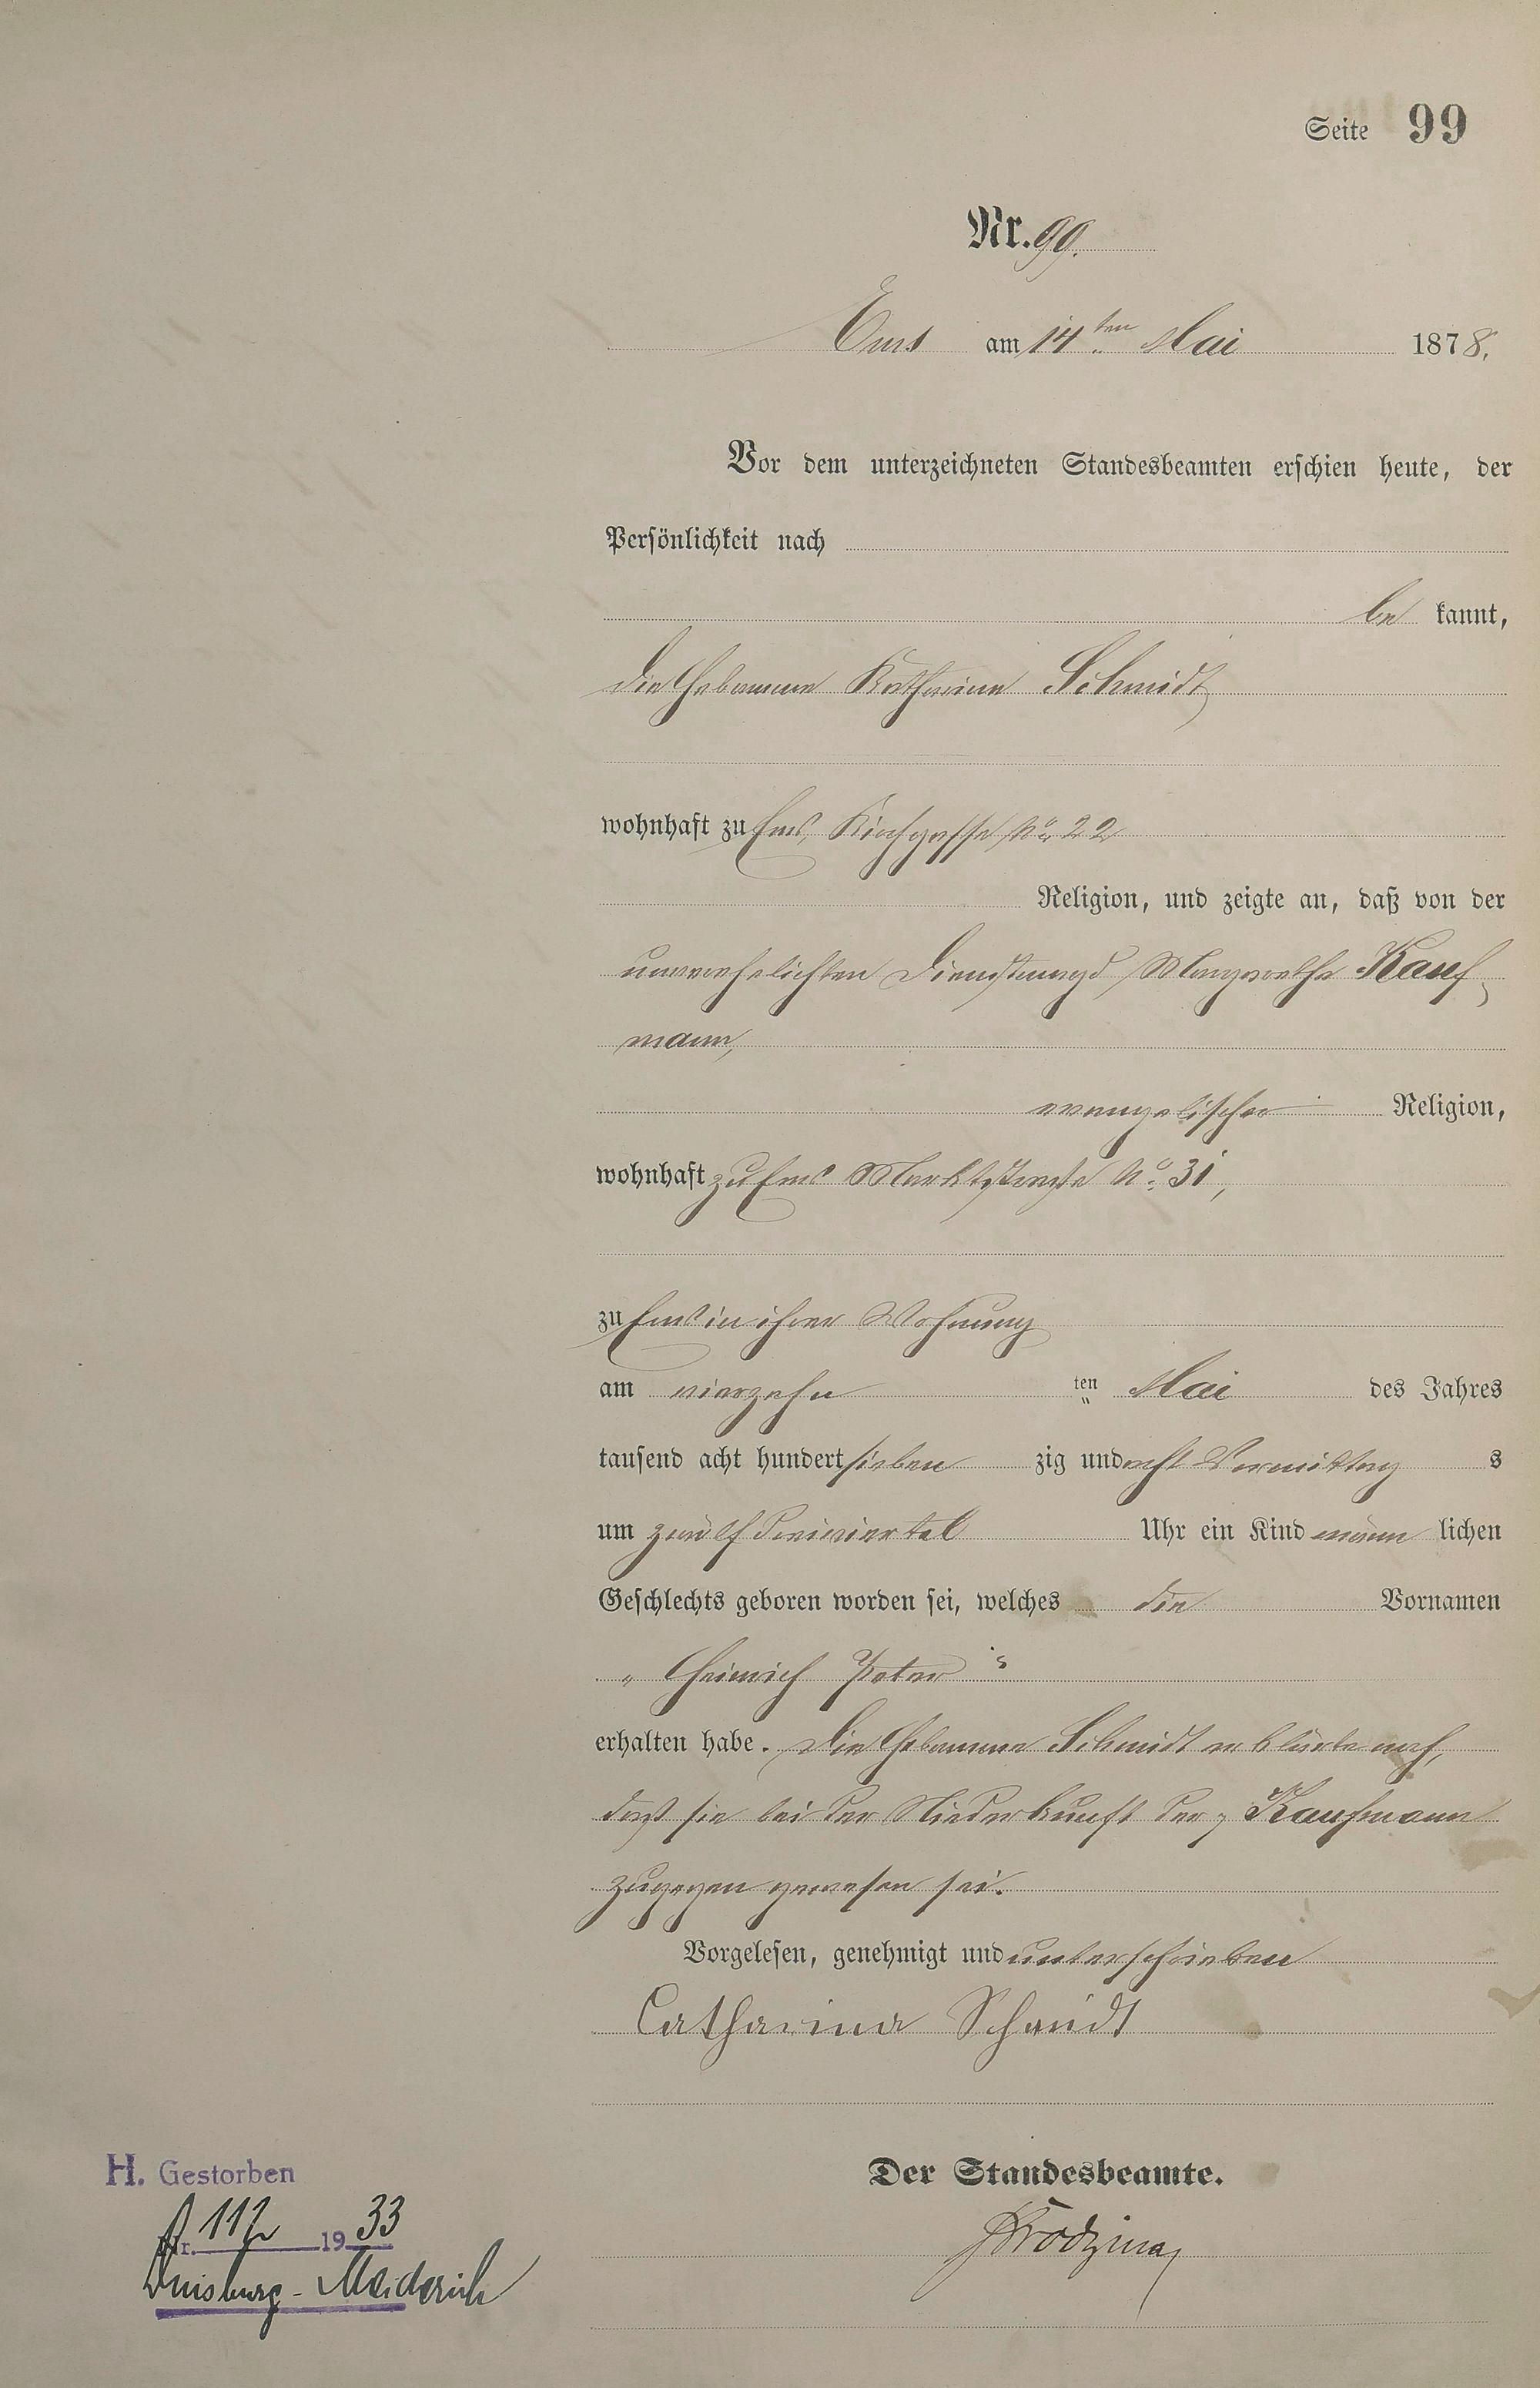 Seite 99
Nr. 99.
Ems am 14ten Mai 1878.
Vor dem unterzeichneten Standesbeamten erschien heute, der
Persönlichkeit nach
be kannt,
die Hebamme Katharina Schmidt
wohnhaft zu Ems, Kirchgasse No 22
Religion, und zeigte an, daß von der
unverehelichten Dienstmagd Margarethe Kauf-
mann,
evangelischer Religion,
wohnhaft zu Ems Marktstraße No. 31,
zu Ems in ihrer Wohnung
am vierzehn ten Mai des Jahres
tausend acht hundert sieben zig und acht Vormittag s
um zwölf dreiviertel Uhr ein Kind männ lichen
Geschlechts geboren worden sei, welches die Vornamen
„Heinrich Peter“
erhalten habe. Die Hebamme Schmidt erklärte noch,
daß sie bei der Niederkunft der Kaufmann
zugegen gewesen sei.
Vorgelesen, genehmigt und unterschrieben
Catharina Schmidt
Der Standesbeamte.
H. Gestorben
Nr. 19 33
Duisburg-Meiderich